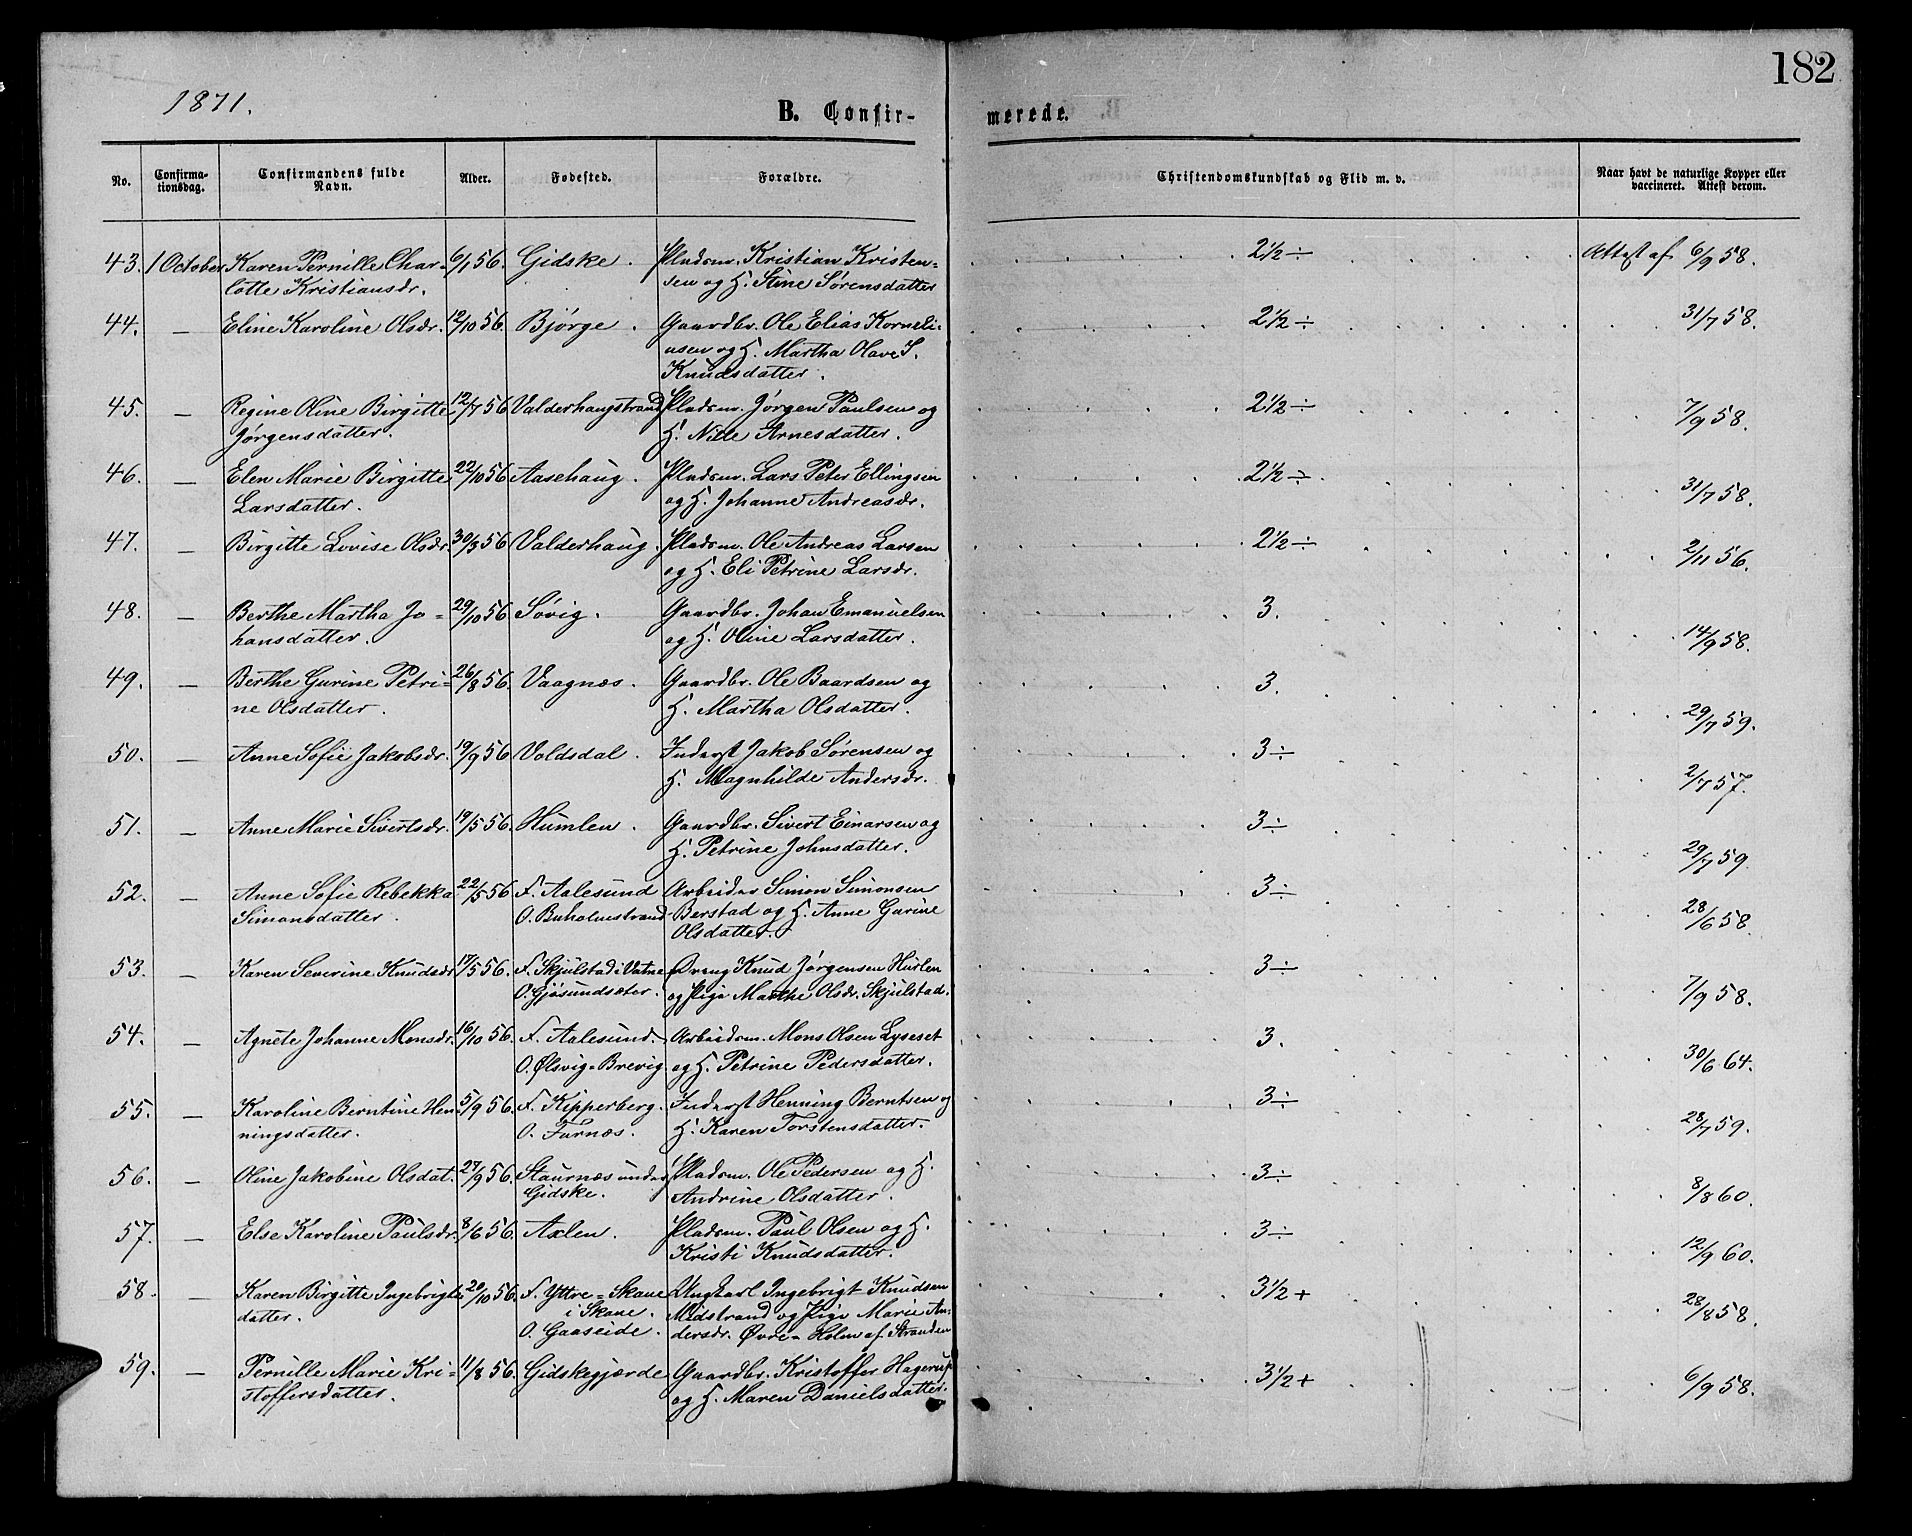 182
1871.
B. Confir-
merede.
No.
Confirma-
tionsdag.
Confirmandens fulde
Navn.
Alder.
Fødested.
Forældre.
Christendomskundskab og Flid m. v.
Naar havt de naturlige Kopper eller
vaccineret. Attest derom.
43. 1 October Karen Pernille Char- 6/1 56. Gidske. Pladsm. Kristian Kristen- 2½ ÷ Attest af 6/9 58.
lotte Kristiansdr. sen og H. Stine Sørensdatter
44. — Eline Karoline Olsdr. 12/10 56. Bjørge. Gaardbr. Ole Elias Korneli- 2½ ÷ 31/7 58.
usen og H. Martha Olave S.
Knudsdatter.
45. — Regine Oline Birgitte 12/7 56 Valderhaugstrand Pladsm. Jørgen Paulsen og 2½ ÷ 7/9 58.
Jørgensdatter. H. Nille Arnesdatter.
46. — Elen Marie Birgitte 22/10 56 Aasehaug. Pladsm. Lars Peter Ellingsen 2½ ÷ 31/7 58.
Larsdatter. og H. Johanne Andreasdr.
47. — Birgitte Lovise Olsdr. 30/3 56 Valderhaug. Pladsm. Ole Andreas Larsen 2½ ÷ 2/11 56.
og H. Eli Petrine Larsdr.
48. — Berthe Martha Jo- 29/10 56 Søvig. Gaardbr. Johan Emanuelsen 3. 14/9 58.
hansdatter. og H. Oline Larsdatter.
49. — Berthe Gurine Petri- 26/8 56. Vaagnæs. Gaardbr. Ole Baardsen og 3. 29/7 59.
ne Olsdatter. H. Martha Olsdatter.
50. — Anne Sofie Jakobsdr. 19/9 56 Voldsdal. Inderst Jakob Sørensen og 3 ÷ 2/7 57.
H. Magnhilde Andersdr.
51. — Anne Marie Sivertsdr. 19/5 56. Humlen. Gaardbr. Sivert Einarsen og 3 ÷ 29/7 59
H. Petrine Johnsdatter.
52. — Anne Sofie Rebekka 22/5 56 F. Aalesund Arbeider Simon Simonsen 3 ÷ 28/6 58.
Simonsdatter. O. Buholmstrand Berstad og H. Anne Gurine
Olsdatter.
53. — Karen Severine Knudsdr 17/5 56. F. Skjulstad i Vatne Dreng Knud Jørgensen Hurlen 3 ÷ 7/9 58.
O. Gjøsundsæter. og Pige Marthe Olsdr. Skjulstad.
54. — Agnete Johanne Monsdr. 16/10 56. F. Aalesund. Arbeidsm. Mons Olsen Lyseset 3. 30/6 64.
O. Ølsvig-Brevig. og H. Petrine Pedersdatter.
55. — Karoline Berntine Hen- 5/9 56. F. Kipperberg. Inderst Henning Berntsen og 3 ÷ 28/7 59.
ningsdatter. O. Turnæs. H. Karen Torstensdatter.
56. — Oline Jakobine Olsdat. 27/9 56. Staurnæs under Pladsm. Ole Pedersen og H. 3 ÷ 8/8 60.
Gidske. Andrine Olsdatter.
57. — Else Karoline Paulsdr. 8/6 56. Axlen. Pladsm. Paul Olsen og H. 3 ÷ 12/9 60.
Kristi Knudsdatter.
58. — Karen Birgitte Ingebrigts 20/10 56. F. Yttre-Skane Ungkarl Ingebrigt Knudsen 3½ + 28/8 58.
datter. i Skane. Midstrand og Pige Marie An-
O. Gaaseide. dersdr. Øvre-Holm af Stranden
59. — Pernille Marie Kri- 11/8 56. Gidskegjærde Gaardbr. Kristoffer Hagerup 3½ + 6/9 58.
stoffersdatter. og H. Maren Danielsdatter.